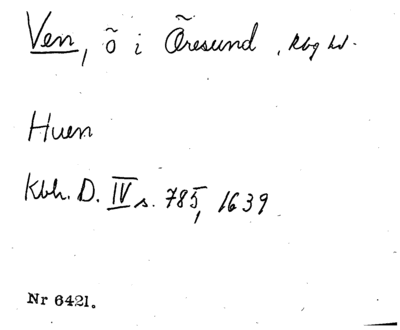 Ven, ö i Öresund, Rbg hd.
Huen
Kbh. D. IV s. 785, 1639
Nr 6421.